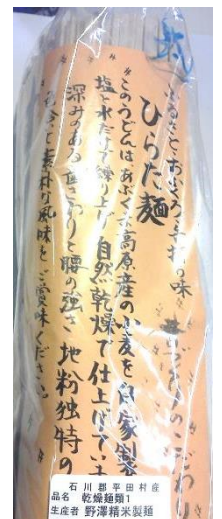 ふるさと・おふくろ・手打の味
ひらた麺
昔づくりのこだわり
このうどんはあぶくま高原産の小麦を自家製
塩と水だけで練り上げ自然乾燥で仕上げています
深みのある舌ざわりと腰の強さ地粉独特の
素朴な風味をご賞味ください。
石川郡平田村産
品名 乾燥麺類1
生産者 野澤精米製麺